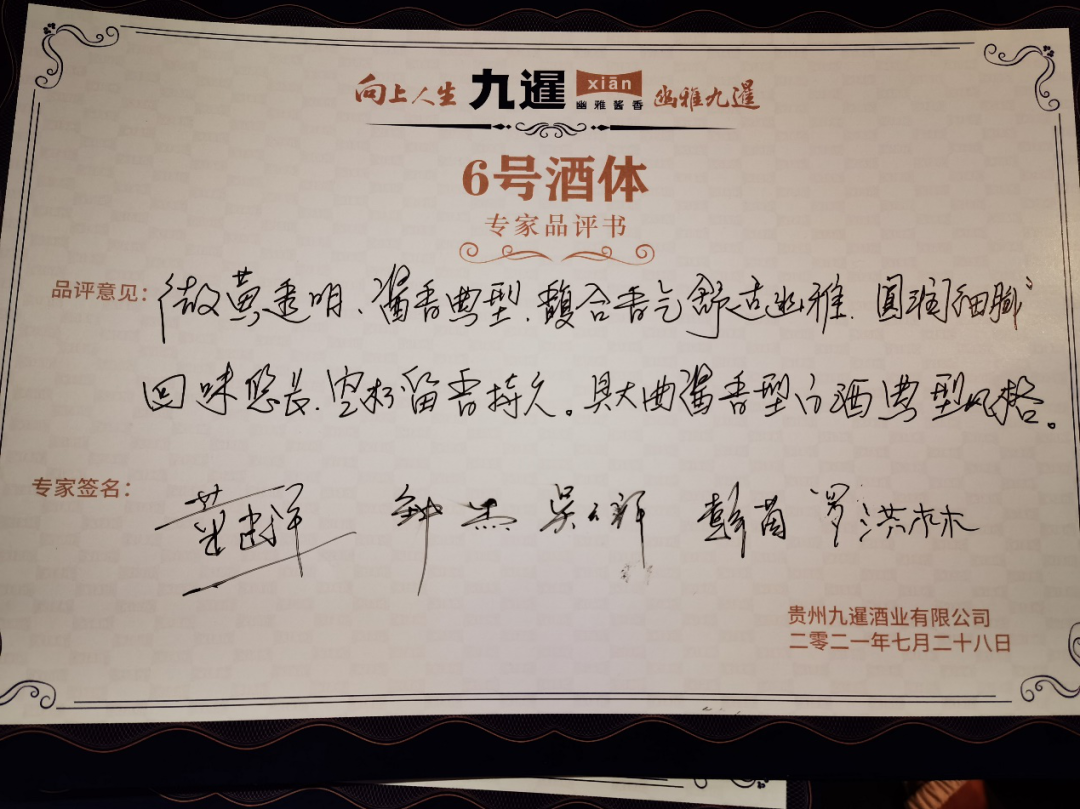 向上人生 九暹 xiān 幽雅酱香 幽雅九暹
6号酒体
专家品评书
品评意见：微黄透明、酱香典型、馥合香气舒适幽雅、圆润细腻、
回味悠长、空杯留香持久。具大曲酱香型白酒典型风格。
专家签名： 钟杰 彭茵 罗洪林
贵州九暹酒业有限公司
二零二一年七月二十八日